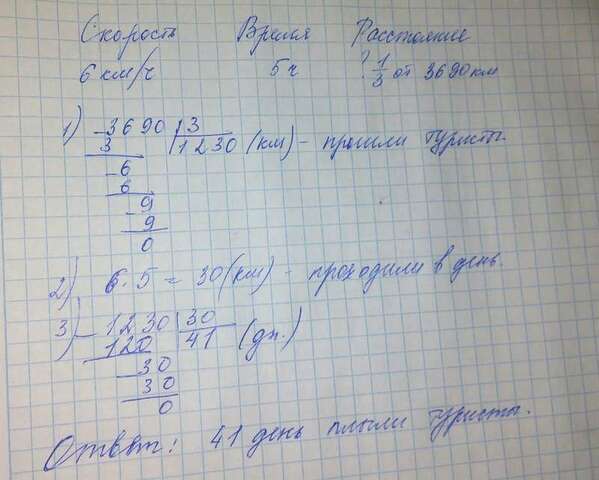 Скорость Время Расстояние
6 км/ч 5 ч ? 1/3 от 3690 км
1) - 3690 | 3
3 | 1230 (км) - прошли туристы.
- 6
6
- 9
9
0
2) 6 · 5 = 30 (км) - проходили в день.
3) - 1230 | 30
120 | 41 (дн.)
- 30
30
0
Ответ: 41 день плыли туристы.